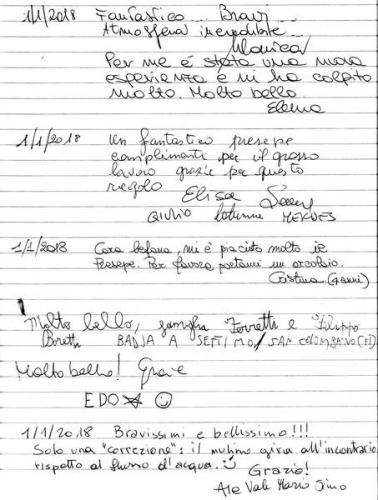 1/1/2018 Fantastico... Bravi...
Atmosfera incredibile...
Monica
Per me è stata una nuova
esperienza e mi ha colpito
molto. Molto bello.
Elena
1/1/2018 Un fantastico presepe
complimenti per il grosso
lavoro grazie per questo
regalo
Elisa
GIULIO MENDES
1/1/2018 Cara befana, mi è piaciuto molto il
Presepe. Per favore portami un orologio.
Cristina (Gianni)
Molto bello, famiglia Ferretti e Filippo
Boretti BADIA A SETTIMO/SAN COLOMBANO (FI)
Molto bello! Grazie
EDO ☺
1/1/2018 Bravissimi e bellissimo!!!
Solo una "correzione": il mulino gira all'incontrario
rispetto al flusso d'acqua. ☺
Grazie!
Ale Vale Mario Gino